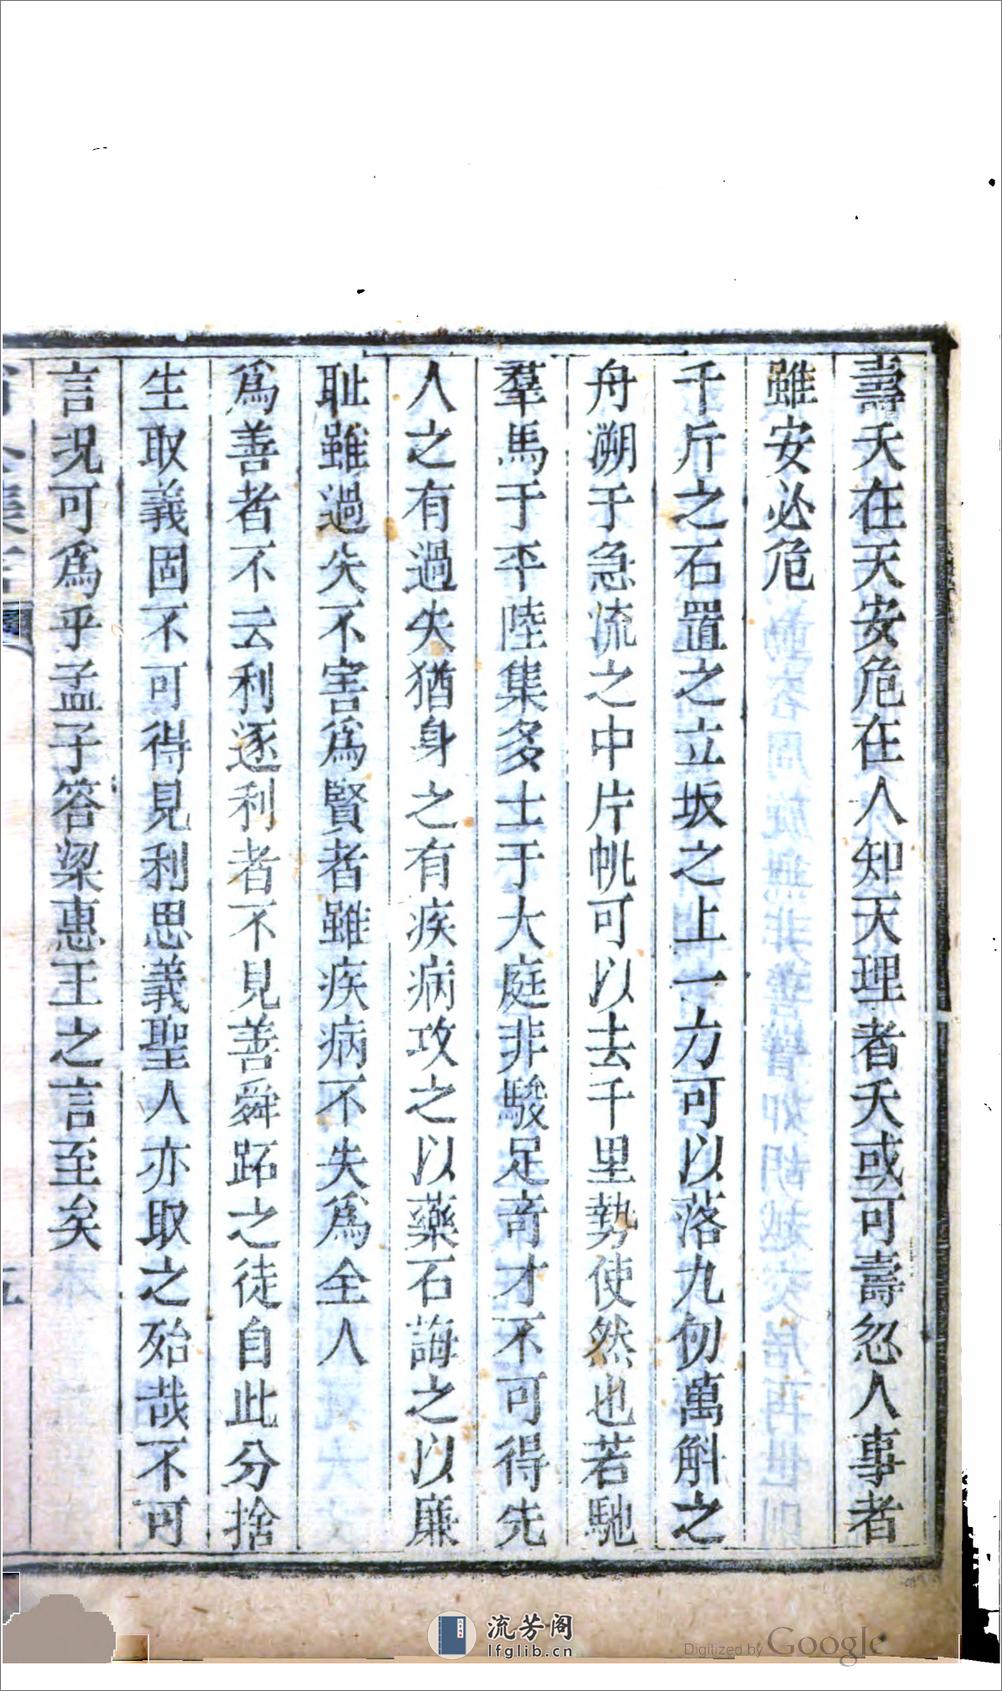 壽夭在天安危在人知天理者夭或可壽忽人事者
雖安必危
千斤之石置之立坂之上一力可以落九仞萬斛之
舟溯于急流之中片帆可以去千里勢使然也若馳
羣馬于平陸集多士于大庭非駿足奇才不可得先
人之有過失猶身之有疾病攻之以藥石誨之以廉
耻雖過失不害爲賢者雖疾病不失爲全人
爲善者不云利逐利者不見善舜跖之徒自此分捨
生取義固不可得見利思義聖人亦取之殆哉不可
言况可爲乎孟子答梁惠王之言至矣
流芳阁
lfglib.cn
Digitized by Google